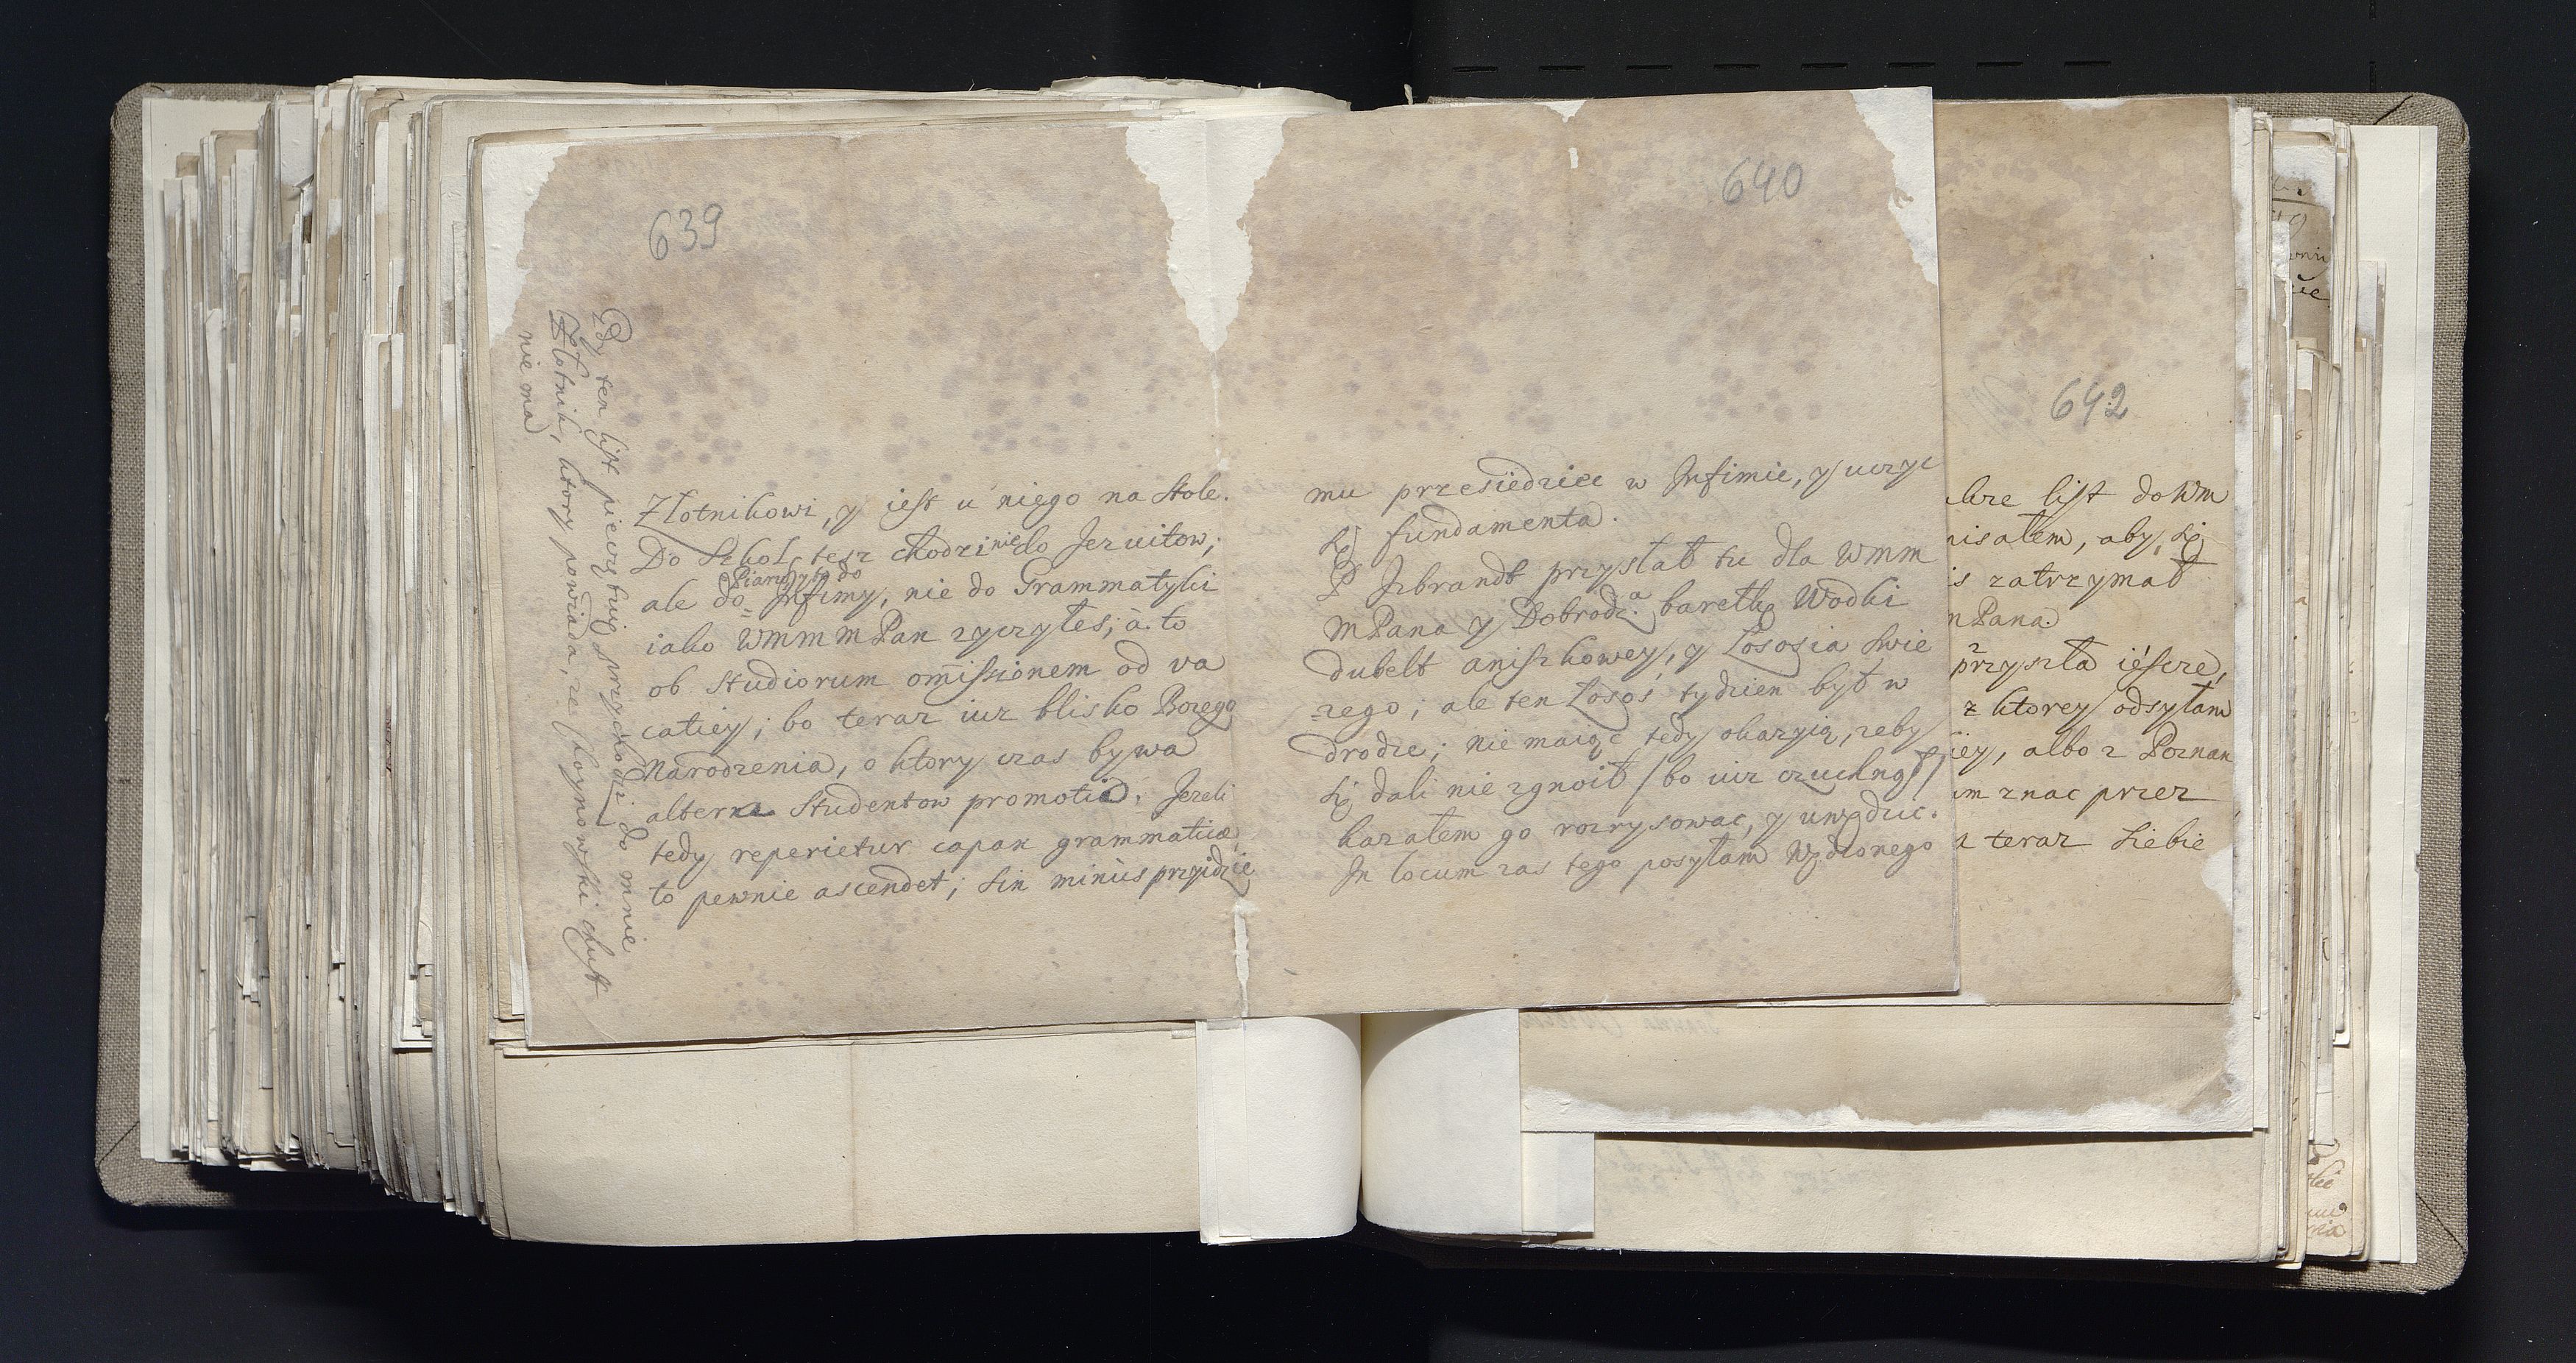 639
Złotnikowi, y iest u niego na stole.
Do Szkoł tesz chodzi nie do Jezuitow,
Piarów to do
ale do Infimy, nie do Grammatyki
iako WmmmPan zyczyłes; à to
ob studiorum omissionem od va
catiey; bo teraz iuz blisko Bozego
Narodzenia, o ktory czas bywa
altera Studentow promotio. Jezeli
tedy reperietur capax grammaticæ,
to pewnie ascendet; sin minùs przyidzie
Gdy ten list pieczętuię, przychodzi do mnie
Złotnik, ktory powiada, ze
nie ma
640
mu przesiedziec w Infimie, y uczyc
się fundamenta.
P Izbrandt przysłał tu dla Wmm
mPana y Dobrodza baretkę Wodki
dubelt aniszkowey, y Łososia swie
zego; ale ten Łosos tydzien był w
drodze; nie maiąc tedy okazyią, zeby
się dali nie zgnoił /bo iuz czuchnął/
kazałem go rozrysowac, y uwędzic.
In locum zas tego posyłam Wędzonego
642
list do Wm
pisałem, aby się
zatrzymał
mPana.
przyszła iescze,
z ktorey odsyłam
albo z Poznan
znac przez
teraz siebie